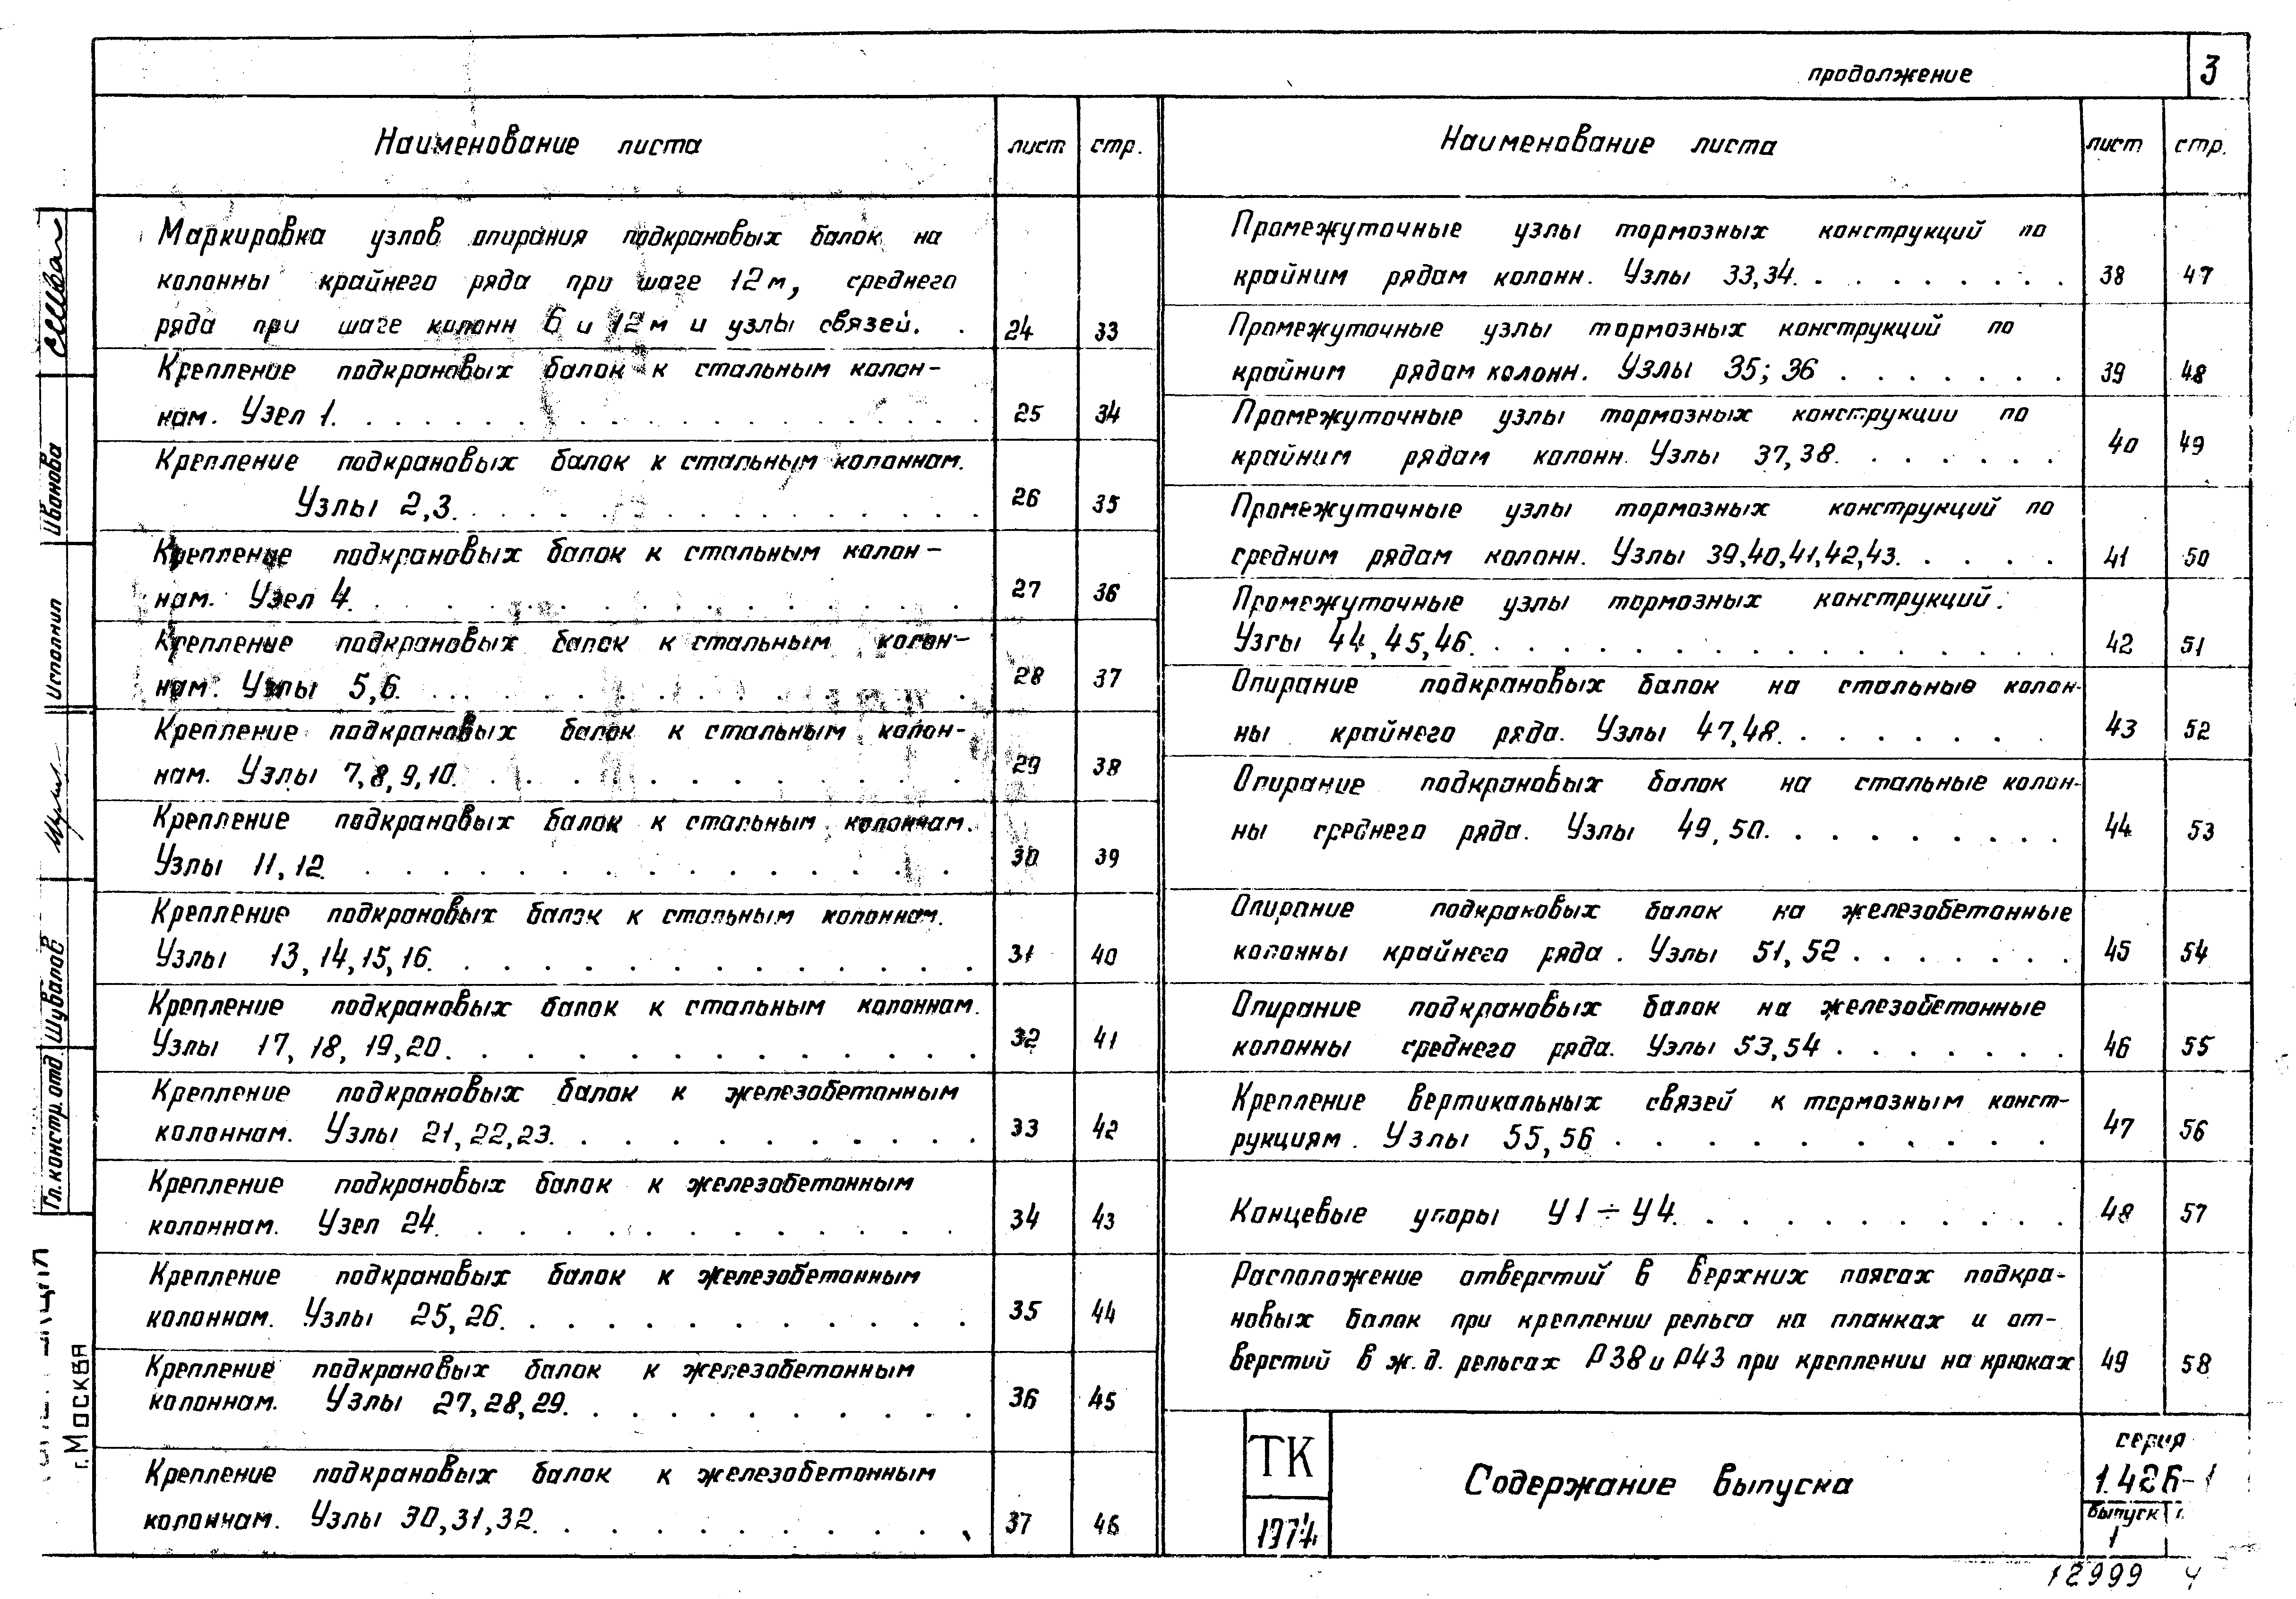 продолжение 3
Наименование листа лист стр.
Маркировка узлов опирания подкрановых балок на
колонны крайнего ряда при шаге 12м, среднего
ряда при шаге колонн 6 и 12м и узлы связей. . 24 33
Крепление подкрановых балок к стальным колон-
нам. Узел 1. 25 34
Крепление подкрановых балок к стальным колоннам.
Узлы 2,3. 26 35
Крепление подкрановых балок к стальным колон-
нам. Узел 4. 27 36
Крепление подкрановых балок к стальным колон-
нам. Узлы 5,6. 28 37
Крепление подкрановых балок к стальным колон-
нам. Узлы 7,8,9,10. 29 38
Крепление подкрановых балок к стальным колоннам.
Узлы 11,12. 30 39
Крепление подкрановых балок к стальным колоннам.
Узлы 13,14,15,16. 31 40
Крепление подкрановых балок к стальным колоннам.
Узлы 17, 18, 19,20. 32 41
Крепление подкрановых балок к железобетонным
колоннам. Узлы 21,22,23. 33 42
Крепление подкрановых балок к железобетонным
колоннам. Узел 24. 34 43
Крепление подкрановых балок к железобетонным
колоннам. Узлы 25,26. 35 44
Крепление подкрановых балок к железобетонным
колоннам. Узлы 27,28,29. 36 45
Крепление подкрановых балок к железобетонным
колоннам. Узлы 30,31,32. 37 46
Наименование листа лист стр.
Промежуточные узлы тормозных конструкций по
крайним рядам колонн. Узлы 33,34. 38 47
Промежуточные узлы тормозных конструкций по
крайним рядам колонн. Узлы 35; 36 39 48
Промежуточные узлы тормозных конструкции по
крайним рядам колонн. Узлы 37,38. 40 49
Промежуточные узлы тормозных конструкций по
средним рядам колонн. Узлы 39,40,41,42,43. 41 50
Промежуточные узлы тормозных конструкций.
Узлы 44,45,46. 42 51
Опирание подкрановых балок на стальные колон-
ны крайнего ряда. Узлы 47,48. 43 52
Опирание подкрановых балок на стальные колон-
ны среднего ряда. Узлы 49,50. 44 53
Опирание подкрановых балок на железобетонные
колонны крайнего ряда. Узлы 51,52 45 54
Опирание подкрановых балок на железобетонные
колонны среднего ряда. Узлы 53,54 46 55
Крепление вертикальных связей к тормозным конст-
рукциям. Узлы 55,56 47 56
Концевые упоры У1÷У4. 48 57
Расположение отверстий в верхних поясах подкра-
новых балок при креплении рельса на планках и от-
верстий в ж.д. рельсах Р38 и Р43 при креплении на крюках 49 58
ТК
1974
Содержание выпуска
серия
1.426-1
выпуск
1
12999 4
Гл. констр. отд. Шувалов
Исполнил Иванова
г. Москва